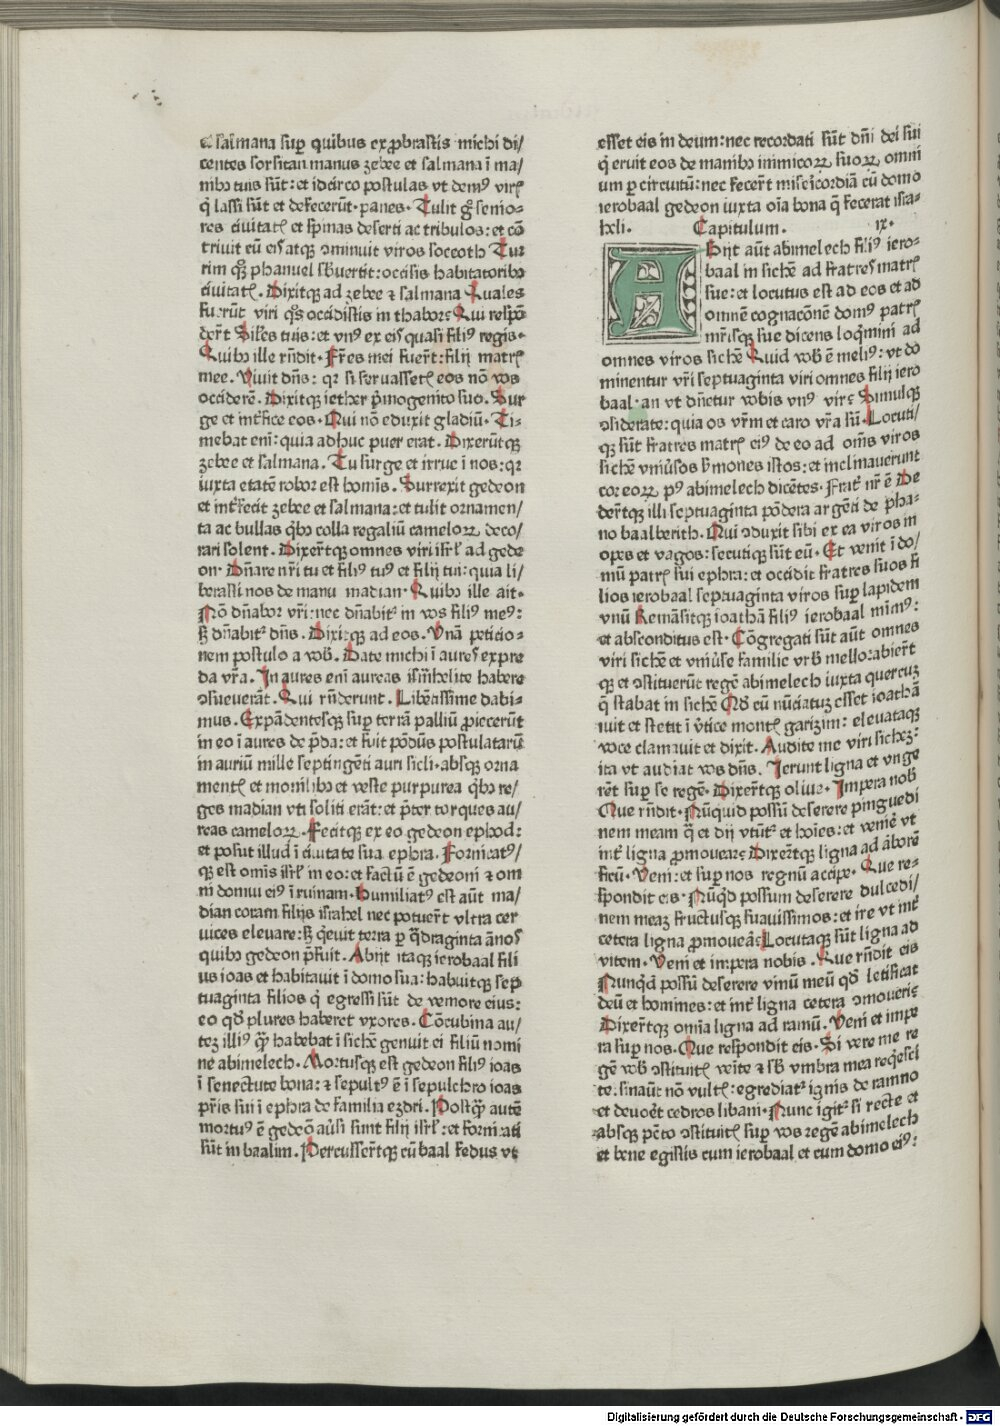 ⁊ salmana suꝑ quibus exꝓbrastis michi di/
centes forsitan manus zebee et salmana ī ma/
nibꝫ tuis sūt: et idcirco postulas vt demꝰ virꝭ
q̄ lassi sūt et defecerūt· panes· Tulit gͦ senio⸗
res ciuitatꝭ et spinas deserti ac tribulos: et cō
triuit eū eisatqꝫ ꝯminuit viros soccoth Tur
rim qꝫ phanuel sb̄uertit: occisis habitatoribꝫ
ciuitatꝭ. Dixitqꝫ ad zebee ⁊ salmana Quales
fuerūt viri qͦs occidistis in thabor? Qui respō
der̄t Siles tuis: et vnꝰ ex eis quasi filiꝰ regis·
Quibꝫ ille rn̄dit· Fr̄es mei fuer̄t: filij matrꝭ
mee. Viuit dn̄s: qꝛ si seruassetꝭ eos nō vos
occiderē. Dixitqꝫ iether pͥmogenito suo. Sur
ge et int̄fice eos· Qui nō eduxit gladiū· Ti⸗
mebat eni: quia adhuc puer erat. Dixerūtqꝫ
zebee et salmana. Tu surge et irrue ī nos: qꝛ
iuxta etatē robor est homīs. Surrexit gedeon
et int̄fecit zebee et salmana: et tulit ornamen/
ta ac bullas qͥbꝫ colla regaliū cameloꝝ deco/
rari solent. Dixer̄tqꝫ omnes viri isrl̄ ad gede
on· Dn̄are nr̄i tu et filiꝰ tuꝰ et filij tui: quia li/
berasti nos de manu madian· Quibꝫ ille ait·
Nō dn̄aboꝛ vr̄i: nec dn̄abitͬ in vos filiꝰ meꝰ:
sꝫ dn̄abitͬ dn̄s. Dixitqꝫ ad eos. Vnā peticio⸗
nem postulo a vob̄. Date michi ī aures expre
da vr̄a. In aures enī aureas ismhelite habere
ꝯsueuerāt. Qui rn̄derunt. Libētissime dabi⸗
mus. Expādentesqꝫ suꝑ terrā palliū ꝓiecerūt
in eo ī aures de p̄da: et fuit pōdus postulatarū
in auriū mille septingēti auri sicli· absqꝫ orna
mentꝭ et monilibꝫ et veste purpurea qͥbꝫ re/
ges madian vti soliti erāt: et p̄ter torques au/
reas cameloꝝ· Fecitqꝫ ex eo gedeon ephod:
et posuit illud ī ciuitate sua ephra. Fornicatꝰ/
qꝫ est omīs isrl̄ in eo: et factū ē gedeoni ⁊ om
ni domui eiꝰ ī ruinam· Humiliatꝰ est aūt ma/
dian coram filijs israhel nec potuer̄t vltra cer
vices eleuare: sꝫ q̄euit terra ꝑ q̄draginta ānos
quibꝫ gedeon p̄fuit. Abijt itaqꝫ ierobaal fili
us ioas et habitauit ī domo sua: habuitqꝫ sep
tuaginta filios q̄ egressi sūt de vemore eius:
eo qd̄ plures haberet vxores. Cōcubina au/
teꝫ illiꝰ qꝫ̄ habebat ī sichē genuit ei filiū nomi
ne abimelech. Mortusqꝫ est gedeon filiꝰ ioas
ī senectute bona: ⁊ sepultꝰ ē ī sepulchro ioas
pr̄is sui ī ephra de familia ezdri. Postqꝫ̄ autē
mortuꝰ ē gedeō au̓si sunt filij isrl̄: et fornicati
sūt in baalim. Percusser̄tqꝫ cū baal fedus vt
esset eis in deum: nec recordati sūt dn̄i dei sui
q̄ eruit eos de manibꝫ inimicoꝝ suoꝝ omni
um ꝑ circuitū: nec fecer̄t mise̓icordiā cū domo
ierobaal gedeon iuxta oīa bona q̄ fecerat isra⸗
heli. Capitulum. ix.
Abijt aūt abimelech filiꝰ iero⸗
baal in sichē ad fratres matrꝭ
sue: et locutus est ad eos et ad
omnē cognacōnē domꝰ patrꝭ
mr̄isqꝫ sue dicens loq̓mini ad
omnes viros sichē Quid vob̄ ē meliꝰ: vt do
minentur vr̄i septuaginta viri omnes filij iero
baal· an vt dn̄etur vobis vnꝰ vir? Simulqꝫ
ꝯsiderate: quia os vr̄m et caro vr̄a sū. Locuti/
qꝫ sūt fratres matrꝭ eiꝰ de eo ad om̄s viros
sichē vniu̓sos sermones istos: et inclinauerunt
cor eoꝝ pꝰ abimelech dicētes· Frat̄ nr̄ ē De
der̄tqꝫ illi septuaginta pōdera argēti de pha⸗
no baalberith. Qui ꝯduxit sibi ex ea viros in
opes et vagos: secutiqꝫ sūt eū· Et venit ī do/
mū patrꝭ sui ephra: et occidit fratres suos fi
lios ierobaal septuaginta viros suꝑ lapidem
vnū Remāsitqꝫ ioathā filiꝰ ierobaal mimꝰ:
et absconditus est· Cōgregati sūt aūt omnes
viri sichē et vniu̓se familie vrb̄ mello: abier̄t
qꝫ et ꝯstituerūt regē abimelech iuxta quercuꝫ
q̄ stabat in sichē Qd̄ cū nūciatuꝫ esset ioathā
iuit et stetit ī v̓tice montꝭ garizim: eleuataqꝫ
voce clamauit et dixit. Audite me viri sicheꝫ:
ita vt audiat vos dn̄s. Ierunt ligna et vnge
rēt suꝑ se regē· Dixer̄tqꝫ oliue· Impera nob̄
Que rn̄dit· Nūquid possū deserere pinguedi
nem meam qͣ et dij vtūtͬ et hoīes: et veniē vt
int̄ ligna ꝓmouear? Dixer̄tqꝫ ligna ad arborē
ficū· Veni: et suꝑ nos regnū accipe· Que re⸗
spondit eis· Nūqͥd possum deserere dulcedi/
nem meaꝫ fructusqꝫ suauissimos: et ire vt int̄
cetera ligna ꝓmoueār? Locutaqꝫ sūt ligna ad
vitem· Veni et impera nobis. Que rn̄dit eis
Nunqͥd possū deserere vinū meū qd̄ letificat
deū et homines: et int̄ ligna cetera ꝯmoueri?
Dixer̄tqꝫ omīa ligna ad ramū. Veni et impe
ra suꝑ nos. Que respondit eis· Si vere me re
gē vob̄ ꝯstituitꝭ venite ⁊ sb̄ vmbra mea req̓esci
te: sinaūt nō vultꝭ: egrediatͬ ignis de ramno
et deuoret cedros libani· Nunc igitͬ si recte et
absqꝫ pc̄to ꝯstituitꝭ suꝑ vos regē abimelech
et bene egistis cum ierobaal et cum domo eiꝰ:
Digitalisierung gefördert durch die Deutsche Forschungsgemeinschaft - DFG